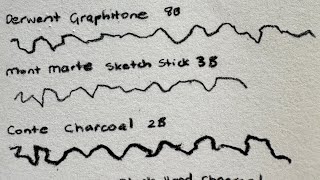 Derwent Graphitone 8B
Mont Marte Sketch Stick 3B
Conte Charcoal 2B
Charcoal